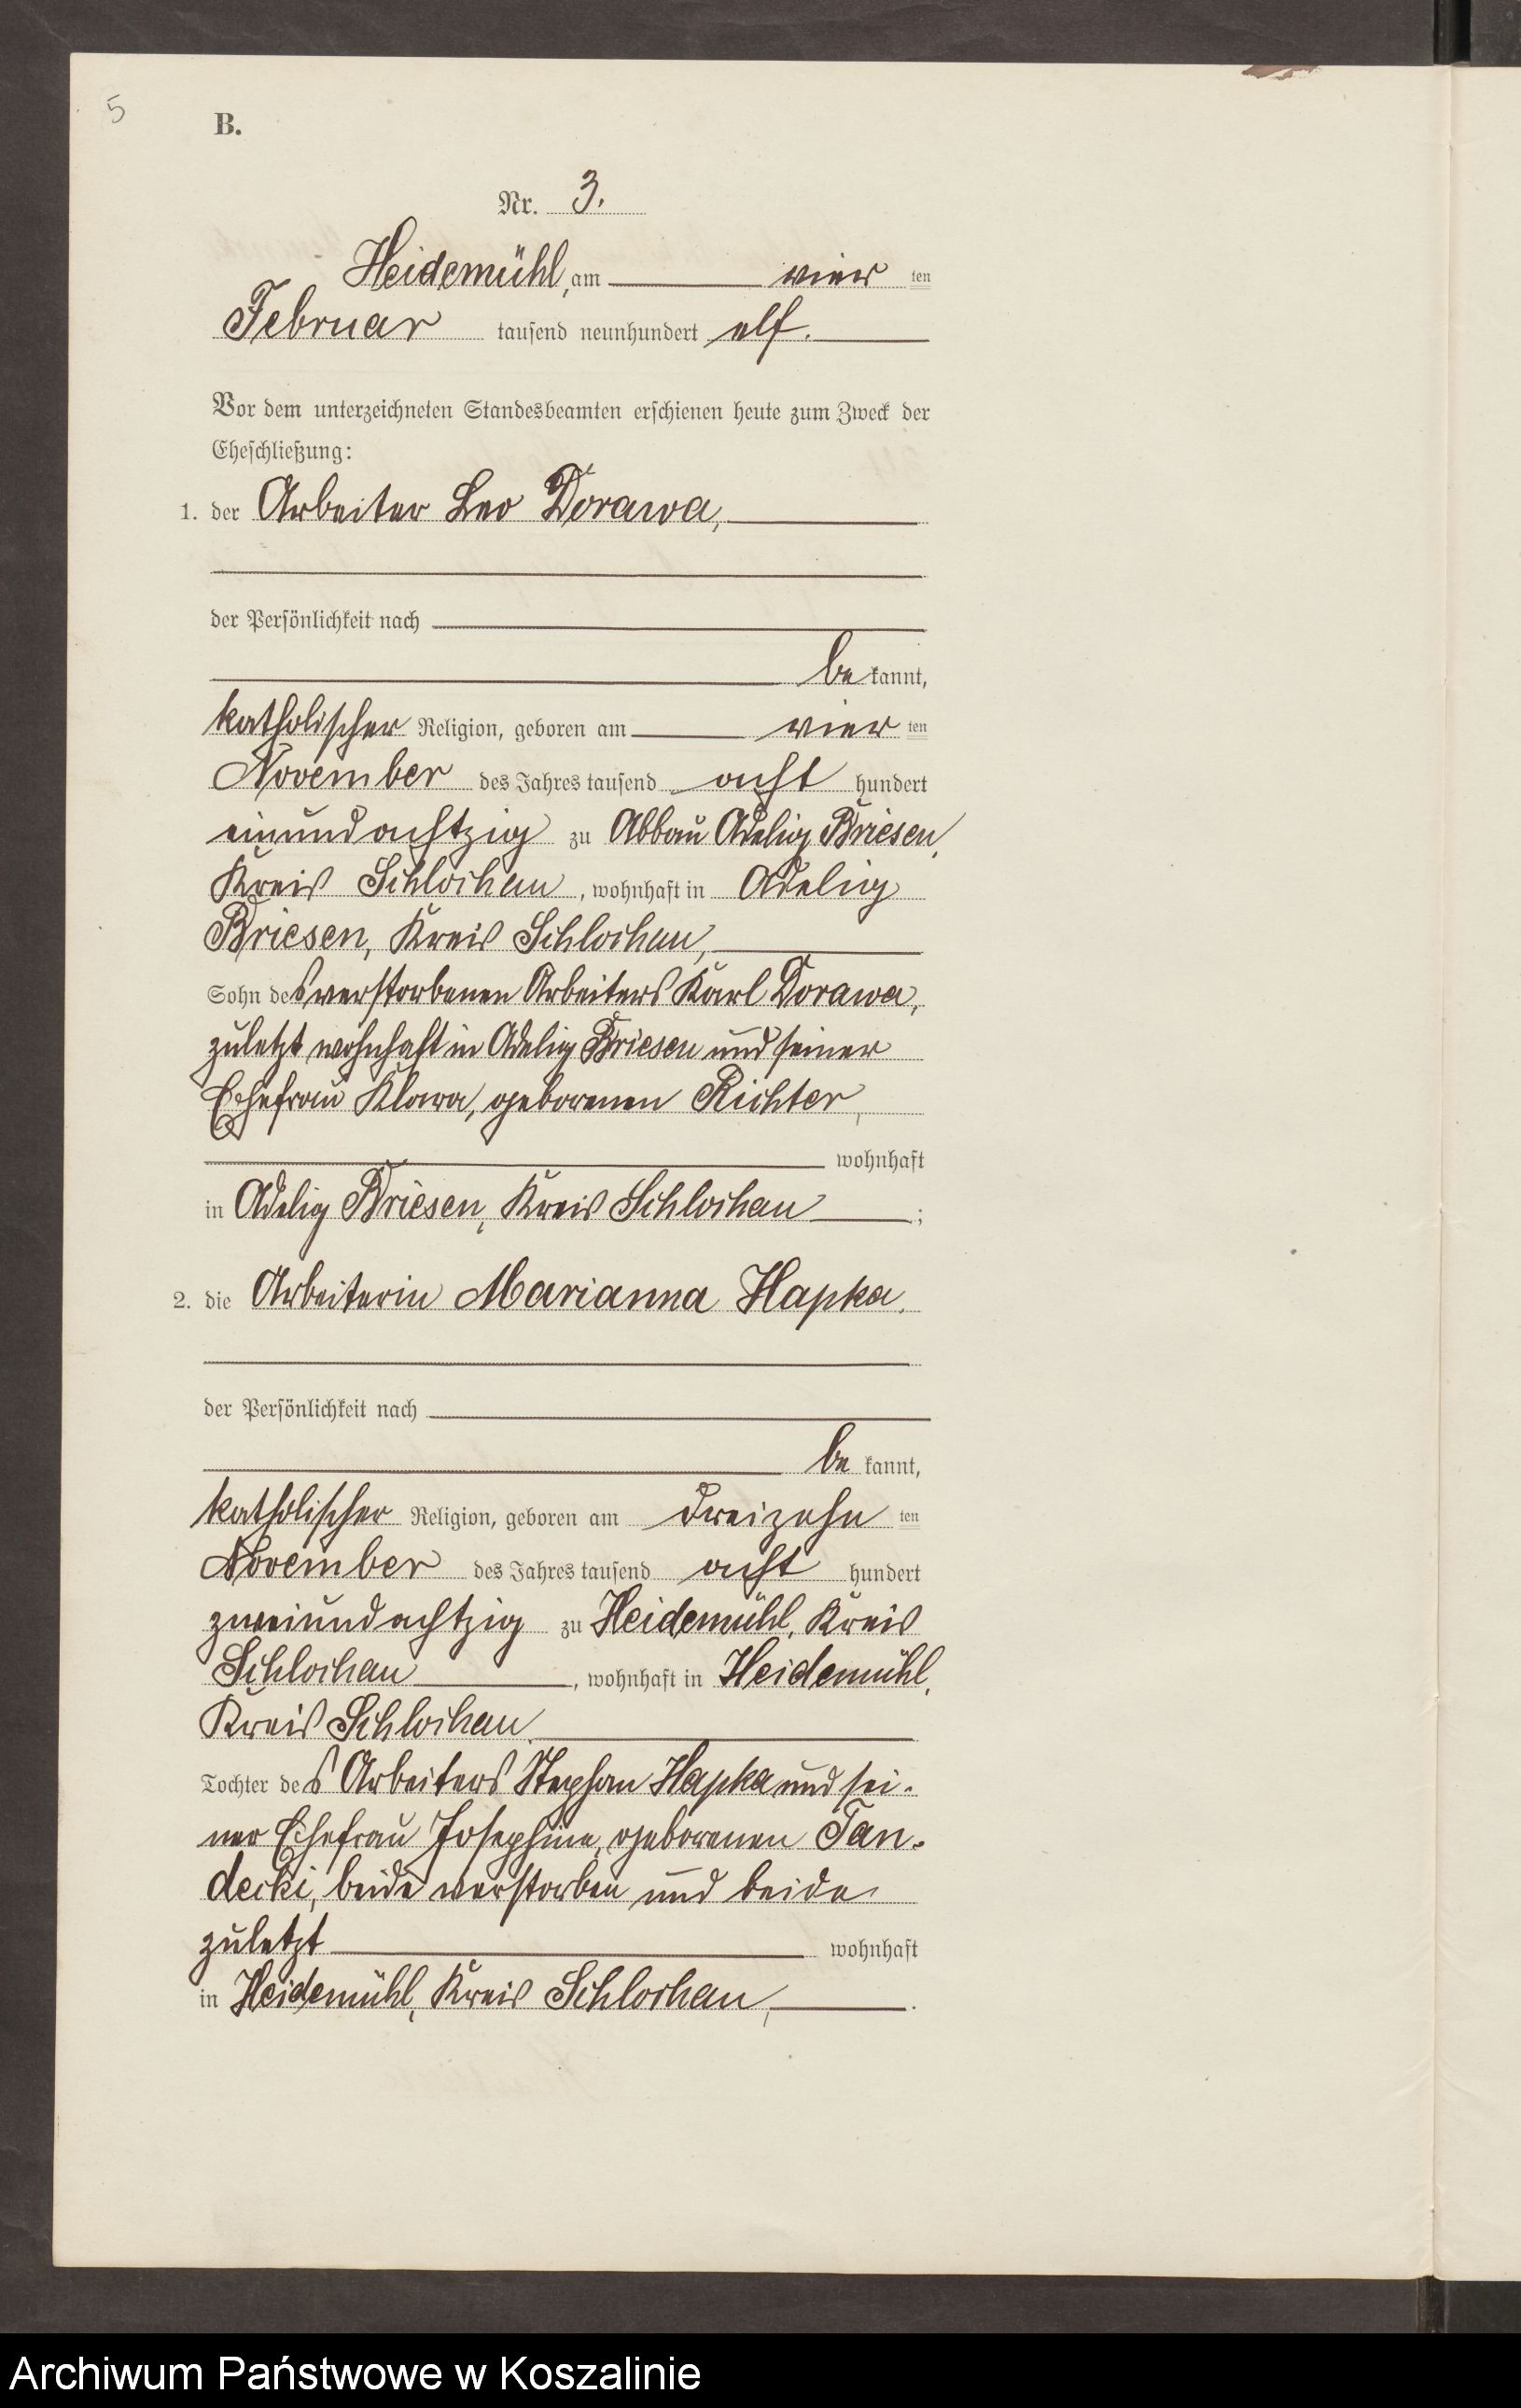 5
B.
Nr. 3.
Heidemühl, am vier ten
Februar tausend neunhundert elf.
Vor dem unterzeichneten Standesbeamten erschienen heute zum Zweck der
Eheschließung:
1. der Arbeiter Leo Dorawa,
der Persönlichkeit nach
be kannt,
katholischer Religion, geboren am vier ten
November des Jahres tausend acht hundert
einundachtzig zu Abbau Adelig Briesen,
Kreis Schlochau, wohnhaft in Adelig
Briesen, Kreis Schlochau,
Sohn des verstorbenen Arbeiters Karl Dorawa,
zuletzt wohnhaft in Adelig Briesen und seiner
Ehefrau Klara, geborenen Richter,
wohnhaft
in Adelig Briesen, Kreis Schlochau;
2. die Arbeiterin Marianna Hapka,
der Persönlichkeit nach
be kannt,
katholischer Religion, geboren am dreizehn ten
November des Jahres tausend acht hundert
zweiundachtzig zu Heidemühl, Kreis
Schlochau, wohnhaft in Heidemühl,
Kreis Schlochau,
Tochter des Arbeiters Stephan Hapka und sei-
ner Ehefrau Josephine, geborenen Tan-
decki, beide verstorben und beide
zuletzt wohnhaft
in Heidemühl, Kreis Schlochau,.
Archiwum Państwowe w Koszalinie